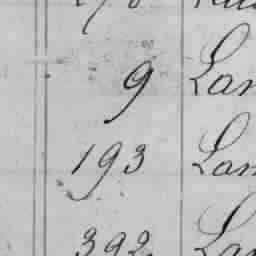 9 Lan
193 Lan
392 Lan